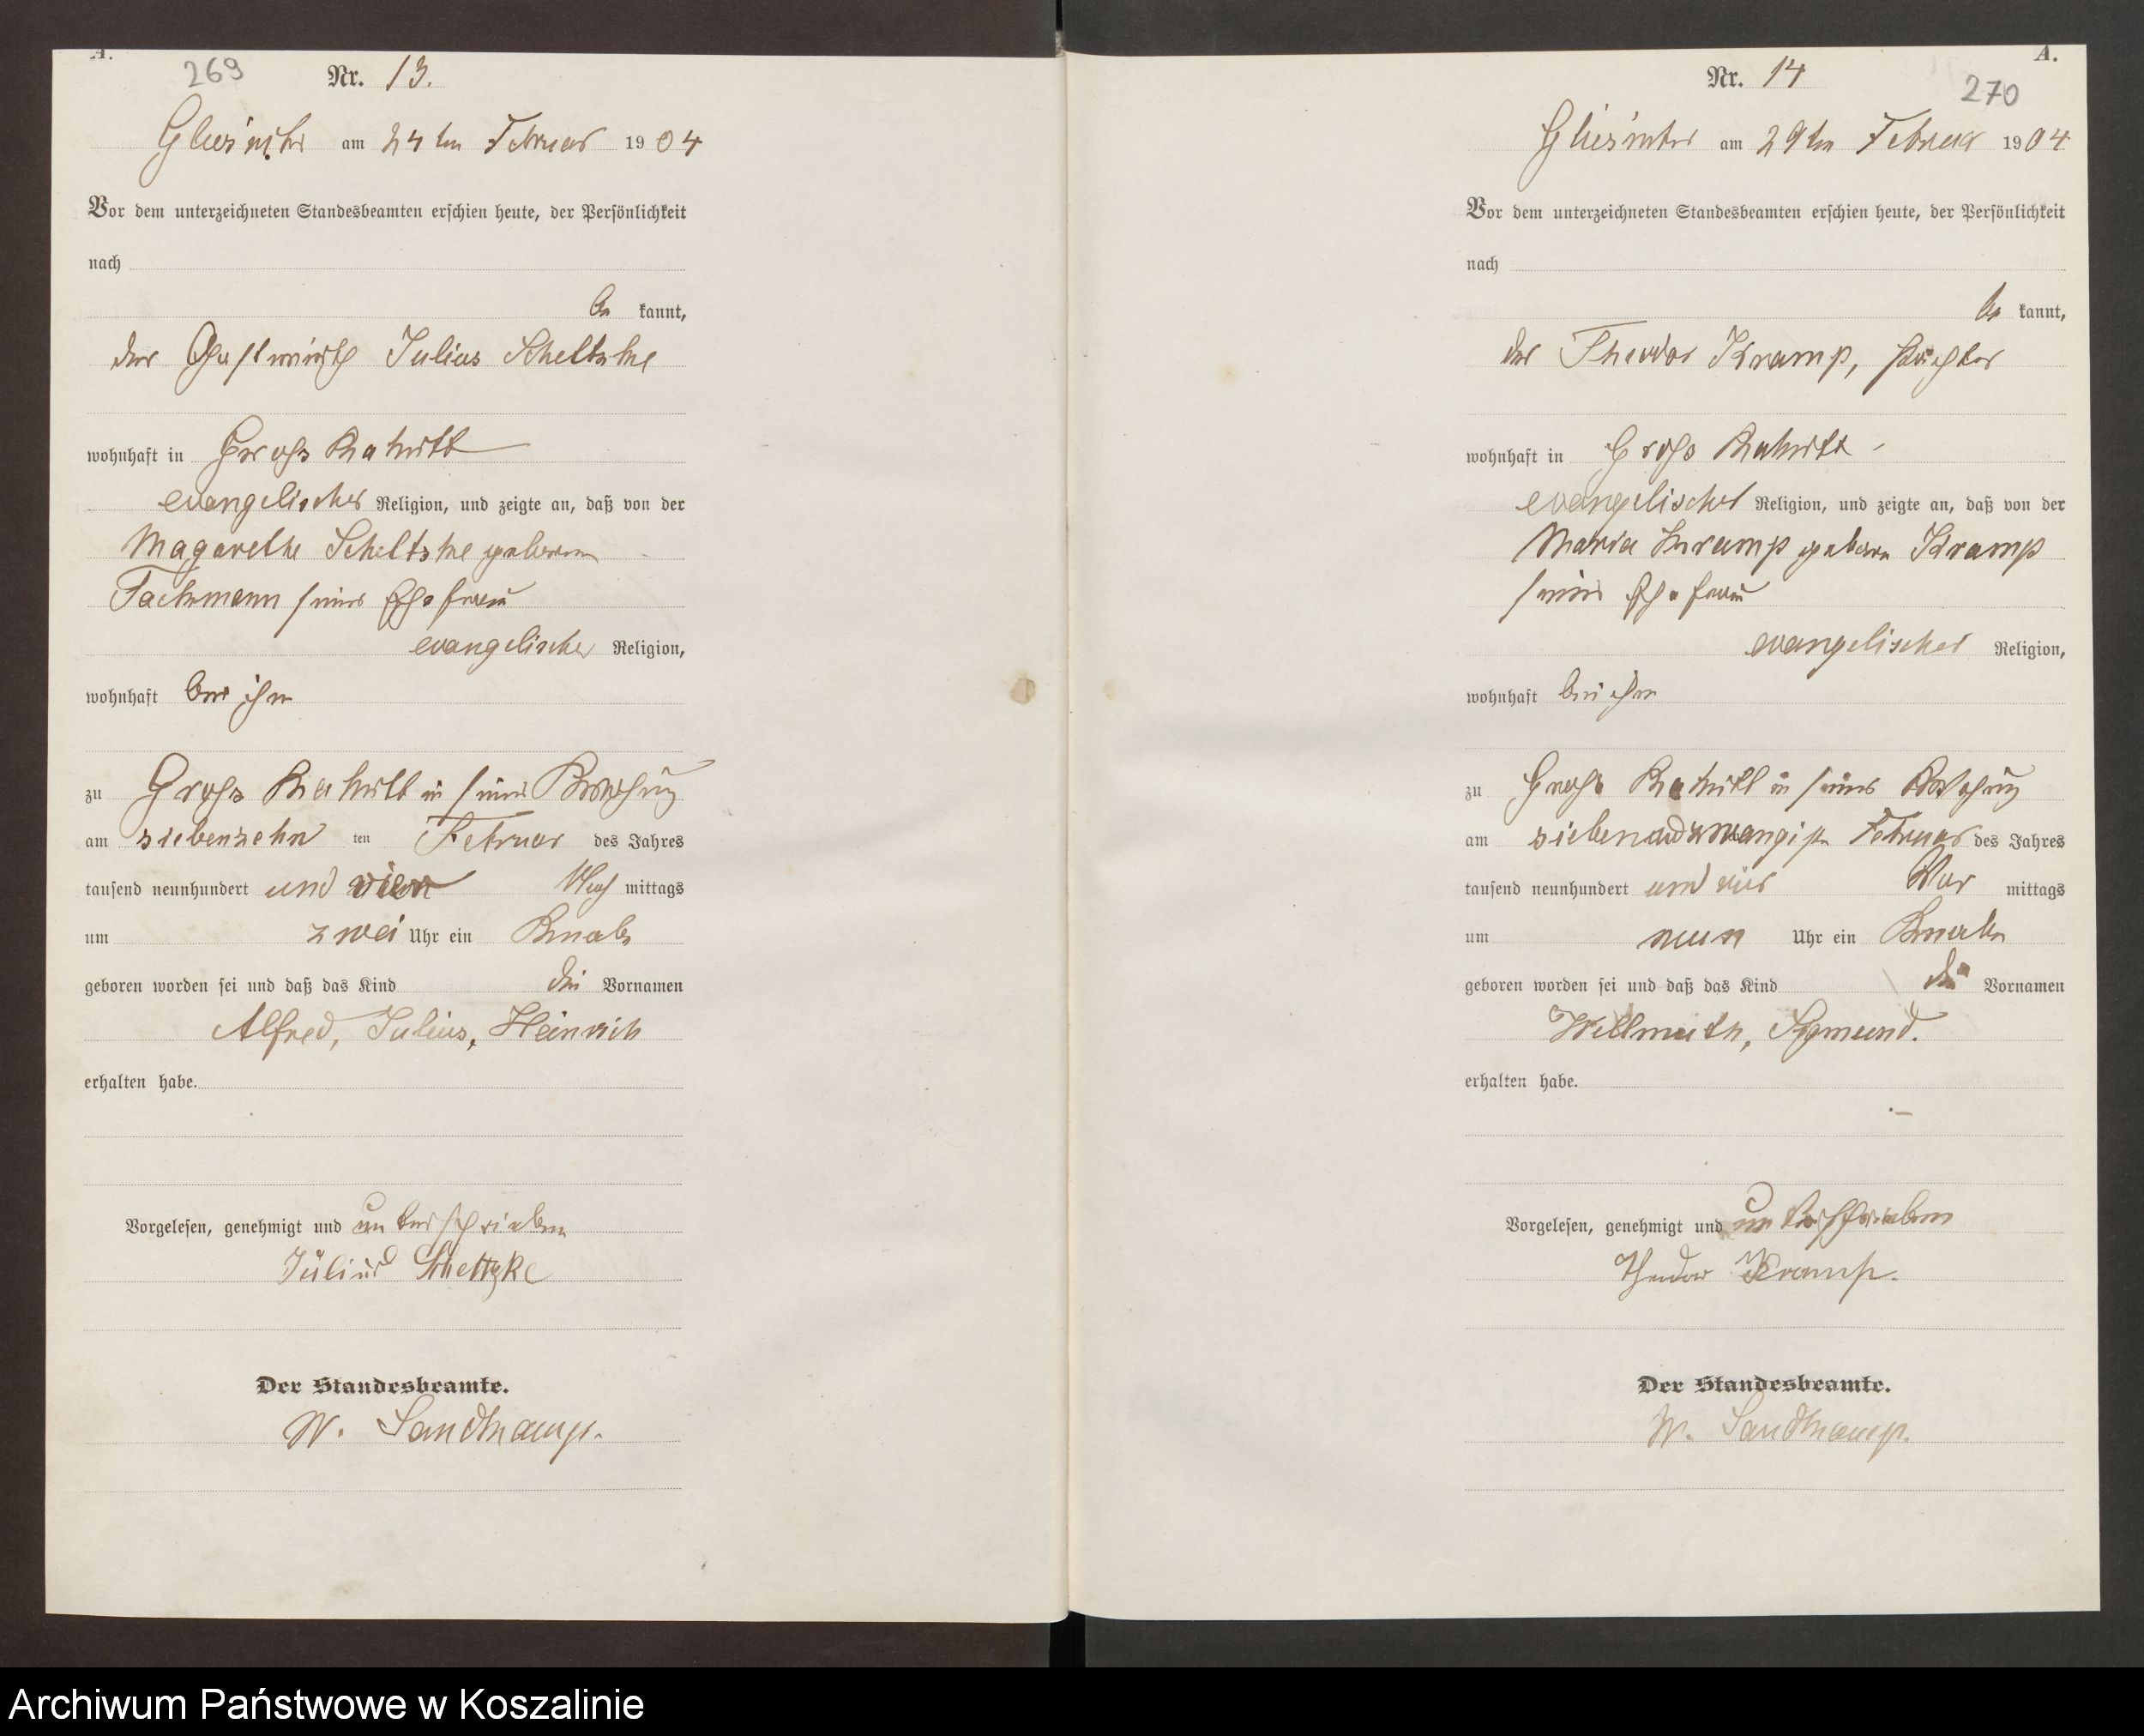 A.
269
Nr. 13.
am 24ten Februar 1904
Vor dem unterzeichneten Standesbeamten erschien heute, der Persönlichkeit
nach
be kannt,
der Gastwirth Julius Scheltzke
wohnhaft in Gross Rakitt
evangelischer Religion, und zeigte an, daß von der
Magarethe Scheltzke geborenen
seiner Ehefrau
evangelischer Religion,
wohnhaft bei ihm
zu Gross Rakitt in seiner
am siebenzehn ten Februar des Jahres
tausend neunhundert und vier Nach mittags
um zwei Uhr ein Knabe
geboren worden sei und daß das Kind die Vornamen
Alfred, Julius, Heinrich
erhalten habe.
Vorgelesen, genehmigt und unterschrieben
Julius Scheltzke
Der Standesbeamte.
W. Sandkamp.
A.
Nr. 14
270
am 29ten Februar 1904
Vor dem unterzeichneten Standesbeamten erschien heute, der Persönlichkeit
nach
be kannt,
der Theodor Kramp, Pächter
wohnhaft in Gross Rakitt
evangelischer Religion, und zeigte an, daß von der
Maria Kramp geborn Kramp
seiner Ehefrau
evangelischer Religion,
wohnhaft bei ihm
zu Gross Rakitt in seiner
am siebenundzwangisten Februar des Jahres
tausend neunhundert und vier Vor mittags
um neun Uhr ein Knabe
geboren worden sei und daß das Kind die Vornamen
erhalten habe.
Vorgelesen, genehmigt und unterschrieben
Theodor Kramp.
Der Standesbeamte.
W. Sandkamp.
Archiwum Państwowe w Koszalinie